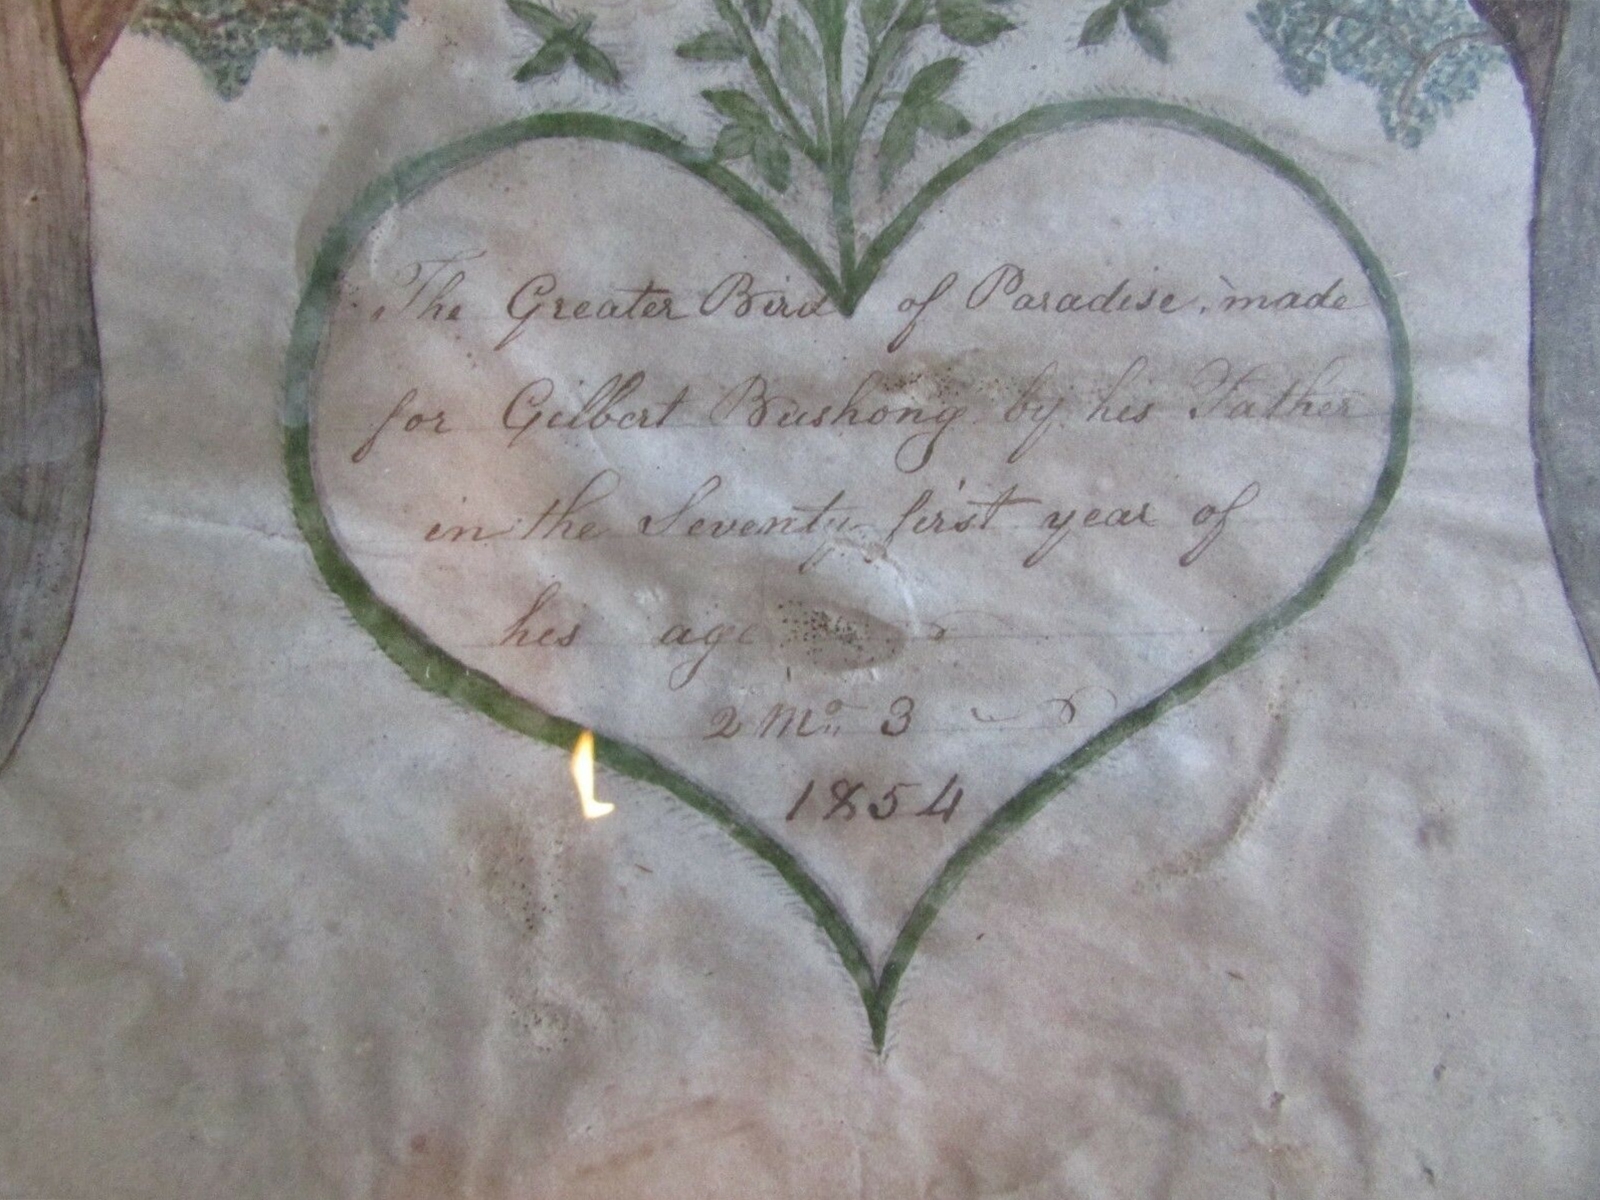 The Greater Bird of Paradise, made
for Gilbert Bushong by his Father
in the Seventy first year of
his age
2 Mo 3
1854